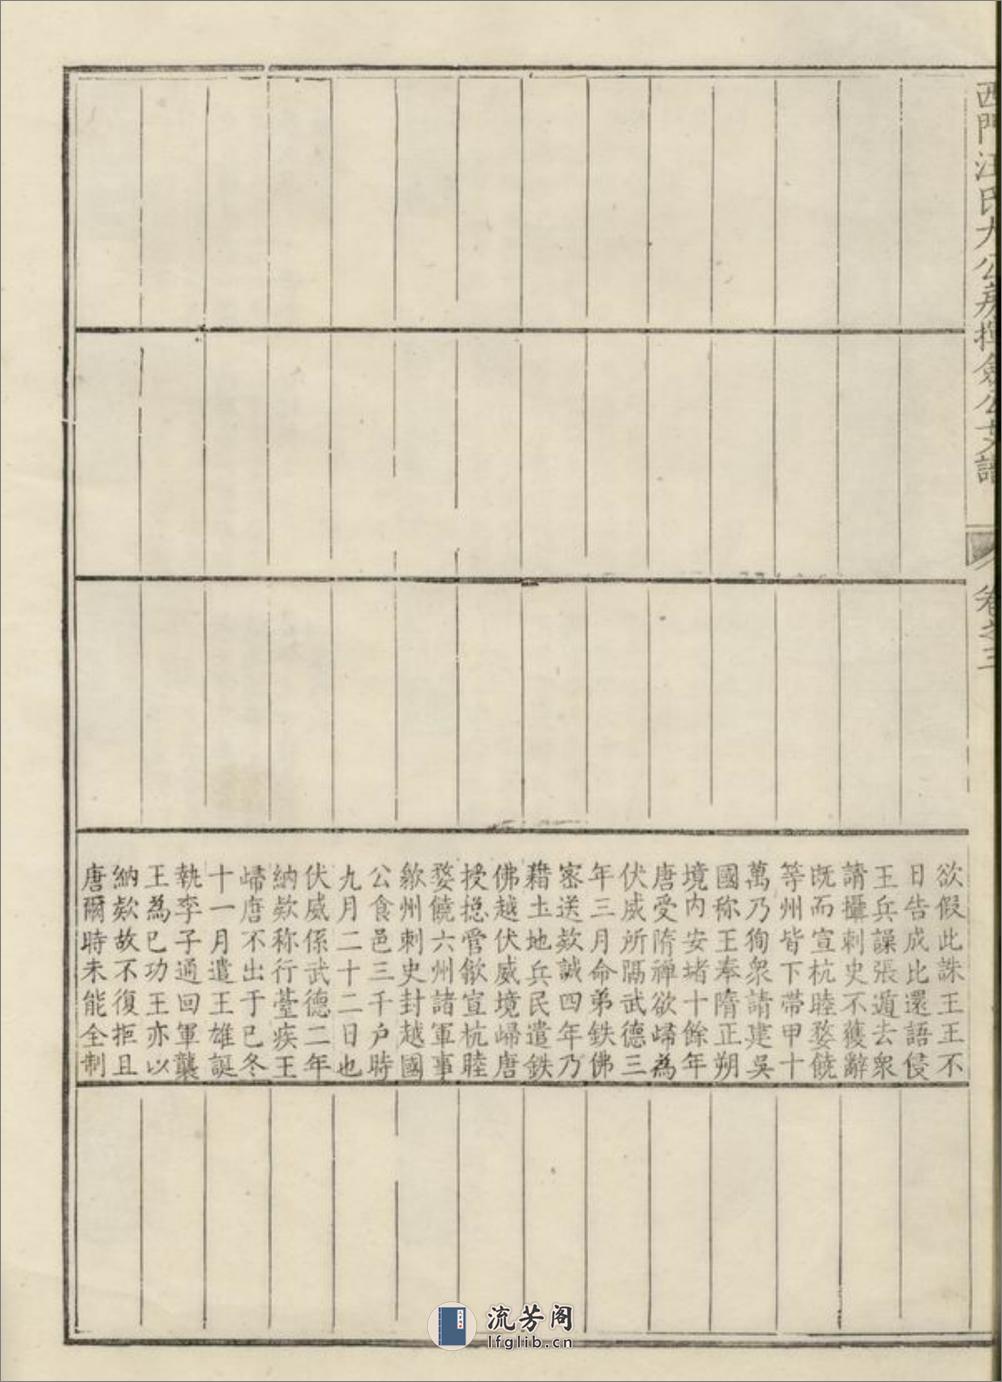 西門汪氏大公房揮僉公支譜
卷之三
欲假此誅王王不
日告成比還語侵
王兵譟張遁去衆
請攝刺史不獲辭
既而宣杭睦婺饒
等州皆下帶甲十
萬乃狥衆請建吳
國称王奉隋正朔
境内安堵十餘年
唐受隋禪欲歸為
伏威所隔武德三
年三月命弟鉄佛
密送欵誠四年乃
藉土地兵民遣鉄
佛越伏威境歸唐
授捴管歙宣杭睦
婺饒六州諸軍事
歙州刺史封越國
公食邑三千户時
九月二十二日也
伏威係武德二年
納欵称行䑓疾王
歸唐不出于已冬
十一月遣王雄誕
執李子通回軍襲
王為已功王亦以
納欵故不復拒且
唐爾時未能全制
流芳阁
lfglib.cn